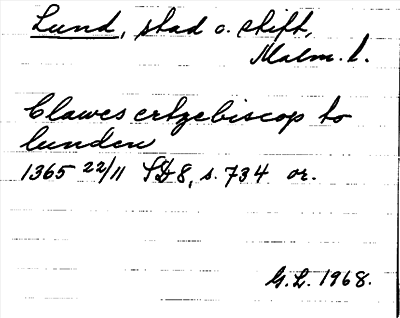 Lund, stad o. stift,
Malm. l.
Clawes ertzebiscop to
lunden
1365 22/11 SD 8, s. 734 or.
G.L. 1968.